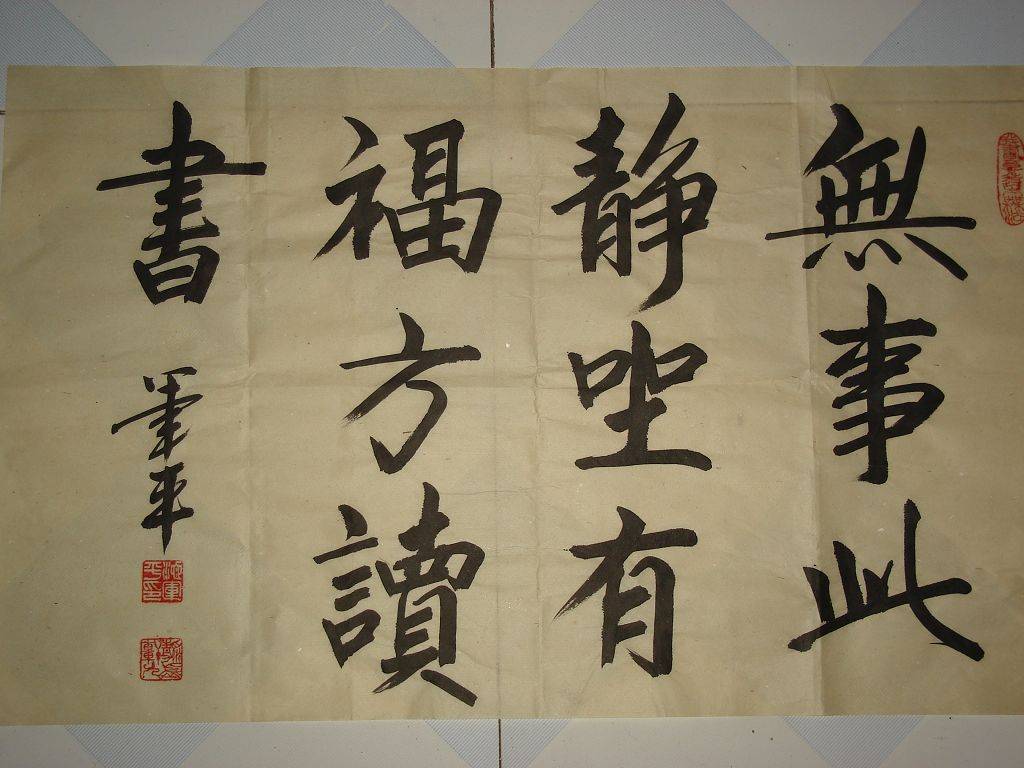 無事此
静坐有
福方讀
書
軍平